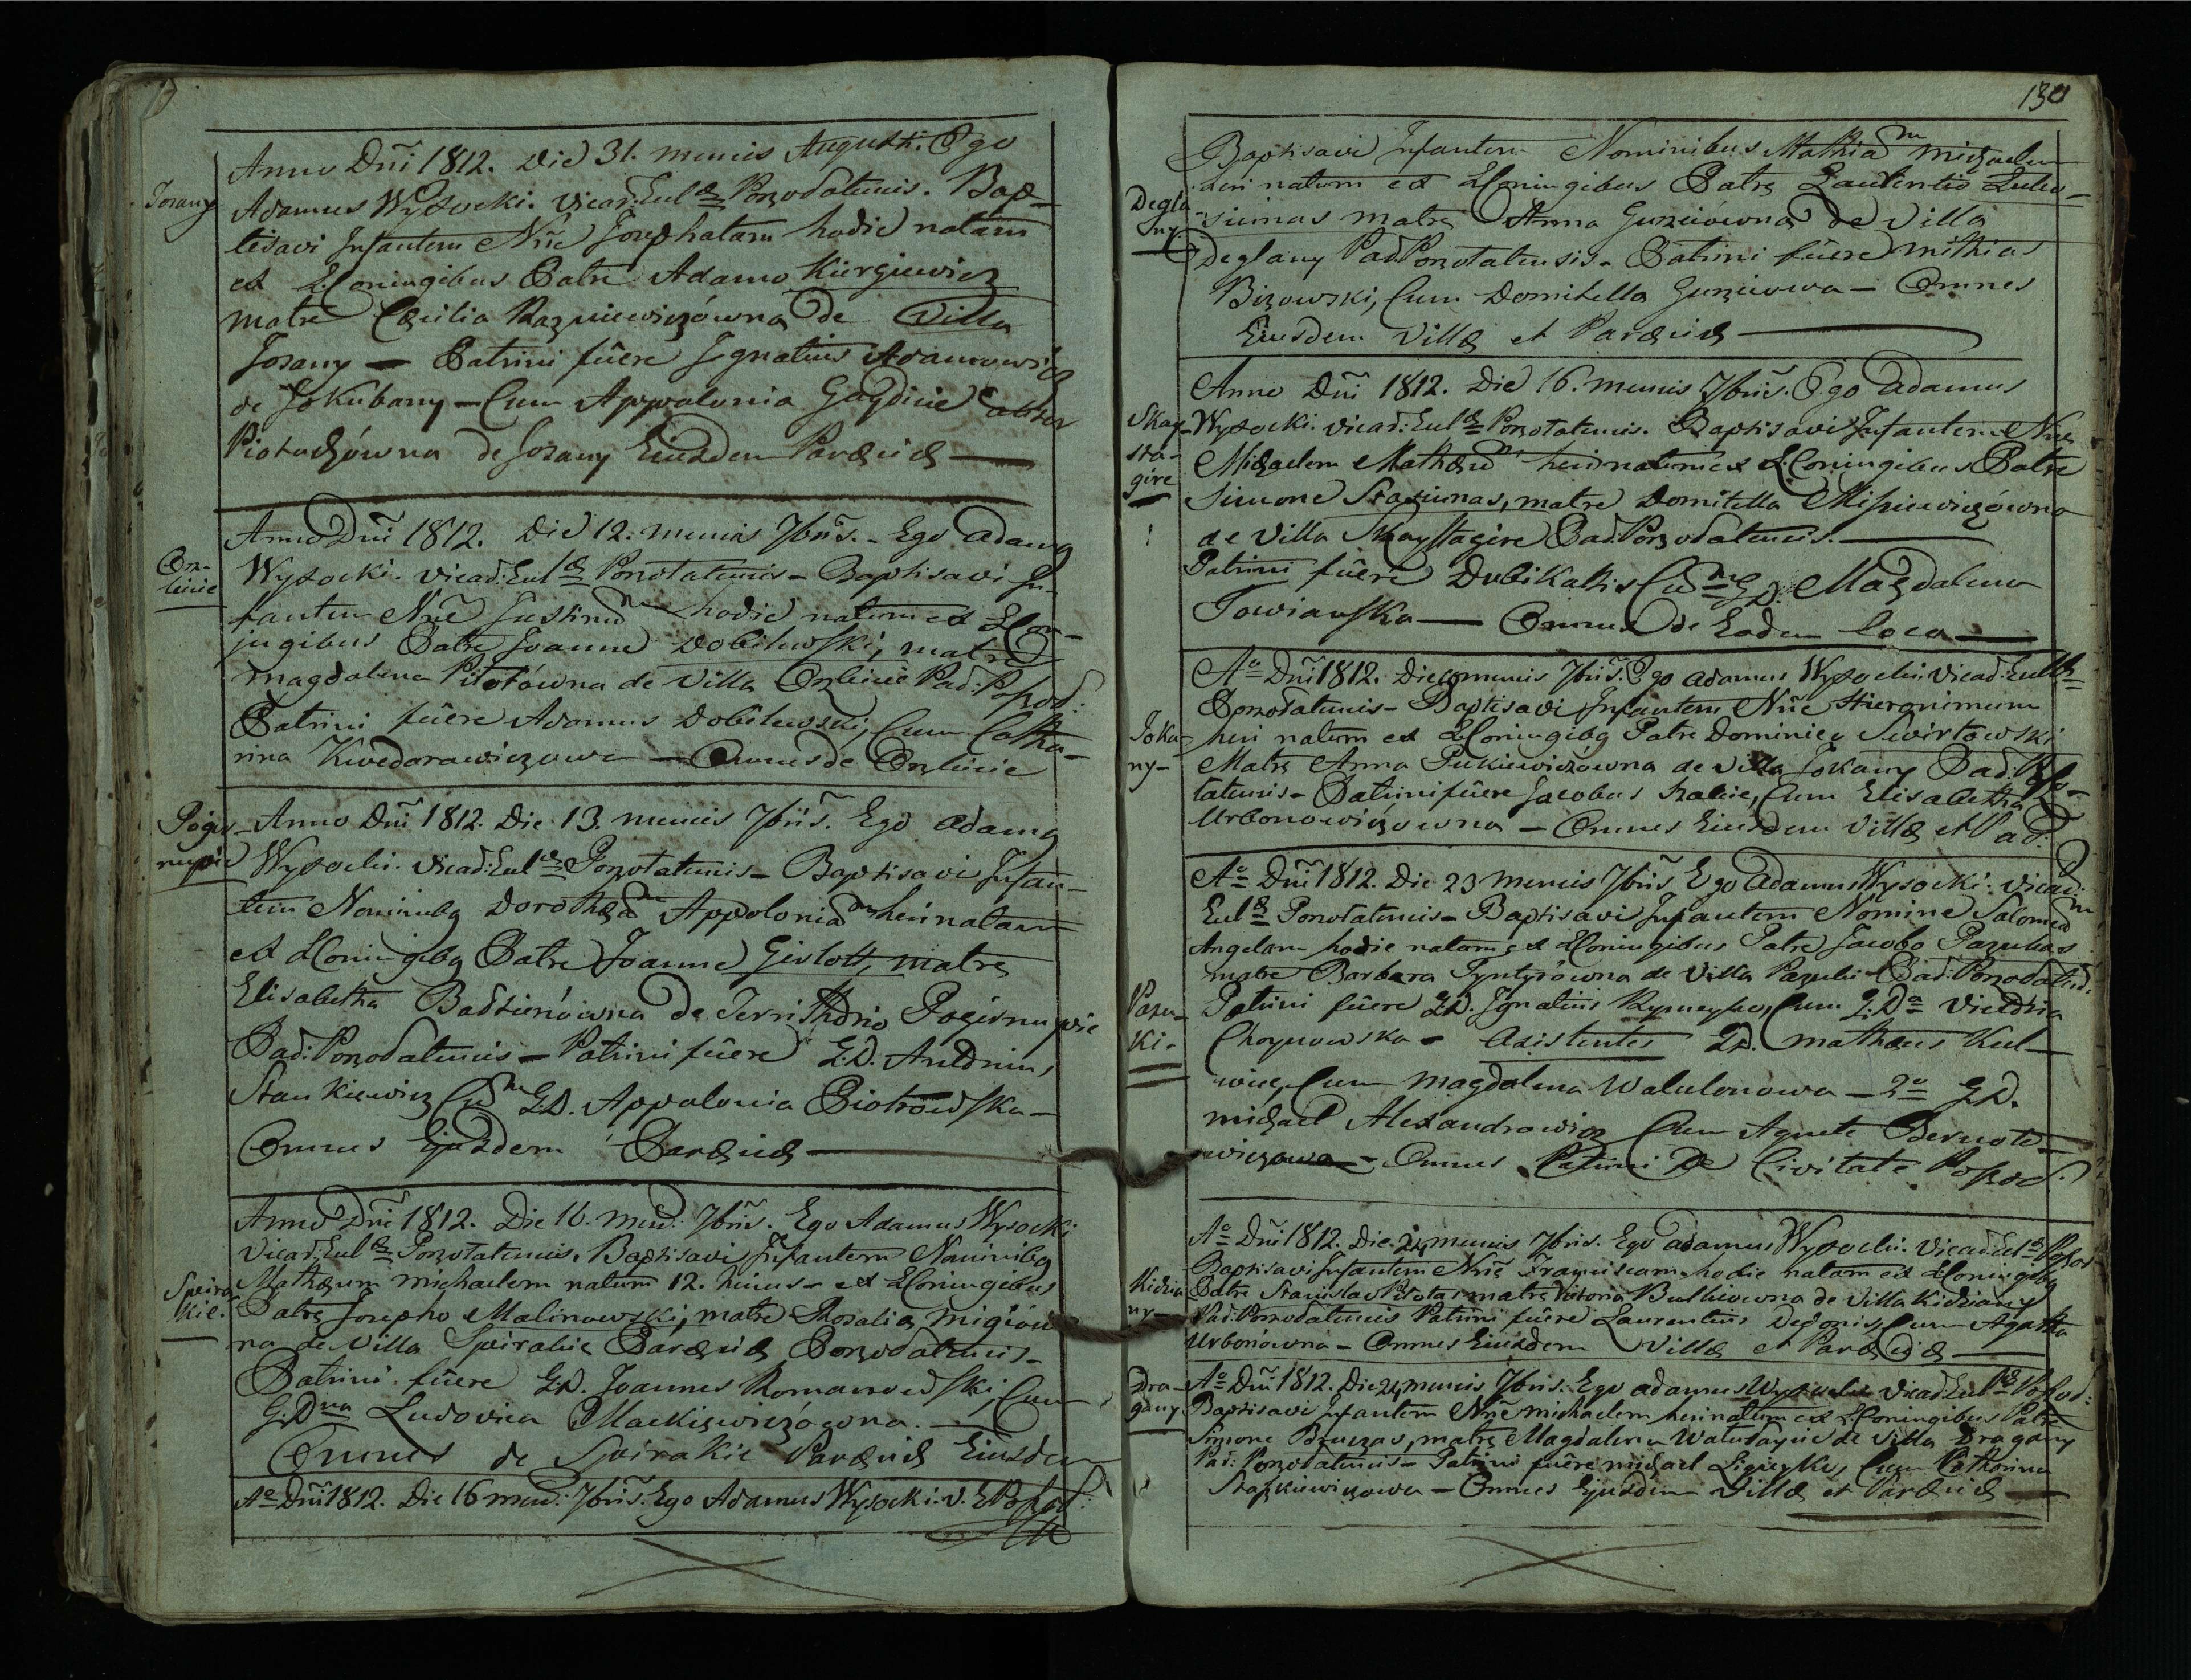 Josany
Anno Dni 1812. Die 31. mensis Augusti. Ego
Adamus Wysocki. Vicad: Eul&
Baptisavi Infantem Nne Josephatam hodie natam
ex LConiugibus Patre Adamo Kiergiewicz
Matre Cæcilia de Villa
Josany — Patrini fûere Ignatius Adamowicz
de Jokubany — Cum Appolonia
de Josany Eiusdem Paræciæ —
Anno Dni 1812. Die 12. mensis 7bris. - Ego Adamus
Wysocki. Vicad: Eul& Ponsodatensis - Baptisavi In-
fantem Nne Justinum hodie natum ex LCon-
jugibus Patre Joanne Dobilewski, matre
Magdalena de Villa
Patrini fûere Adamus Dobilewski, Cum Catha-
rina Kwedarawiczowa — Omnes de
Anno Dni 1812. Die 13. mensis 7bris. Ego Adamus
Wysocki. Vicad: Eul& Ponsodatensis - Baptisavi Infan-
tem Nominibus Dorothæam Appoloniam heri natam
ex LConiugibus Patre Joanne Giwlott, matre
Elisabetha de Territhorio Pogirnupie
Pad: Ponsodatensis - Patrini fûere G.D. Antonius
Stankiewicz Cum G.D. Appolonia Piotrowska -
Omnes Ejusdem Paræciæ —
Spira-
kie.
Anno Dni 1812. Die 16. mens: 7bris. Ego Adamus Wysocki
Vicad: Eul& Ponsodatensis. Baptisavi Infantem Nominibus
Mathæum Michaelem natum 12. huius - ex LConiugibus
Patre Josepho Malinowski, matre Rosalia Migiów-
na de Villa Spirakie Paræciæ Ponsodatensis -
Patrini fûere G.D. Joannes Romanowski, Cum
G.Dna Ludovica Mackiewiczówna. —
Omnes de Spirakie Paræciæ Eiusdem
Ao Dni 1812. Die 16 mens: 7bris. Ego Adamus Wysocki. V.
130
Degla-
ny
Baptisavi Infantem Nominibus Mathiam Michaelem
heri natum ex LConiugibus Patre Laurentio
matre Anna de Villa
Deglany Pad: Ponsodatensis - Patrini fûere Mathias
Bizowski, Cum Domitella — Omnes
Eiusdem Villæ et Paræciæ —
Skay-
sta-
gire
Anno Dni 1812. Die 16. mensis 7bris. Ego Adamus
Wysocki. Vicad: Eul& Ponsodatensis. Baptisavi Infantem Nne
Michaelem Mathæum heri natum ex LConiugibus Patre
Simone Staziunas, matre Domitella
de Villa Skaystagire Pad: Ponsodatensis. —
Patrini fûere Dubikaltis Cum G.D. Magdalena
Towianska — Omnes de Eodem loco —
Joka-
ny -
Ao Dni 1812. Die mensis 7bris. Ego Adamus Wysocki Vicad: Eul&
Ponsodatensis - Baptisavi Infantem Nne Hieronimum
heri natum ex LConiugibus Patre Dominico Swirtowski
Matre Anna Pukiewiczówna de Villa Jokany Pad:
tatensis - Patrini fûere Jacobus Cum Elisabetha
Urbonowiczowna — Omnes Eiusdem Villæ et Pad:
Pazu-
ki -
Ao Dni 1812. Die 23 mensis 7bris Ego Adamus Wysocki: Vicad:
Eul& Ponsodatensis - Baptisavi Infantem Nomine Salomeam
Angelam hodie natam ex LConiugibus Patre Jacobo Pazukas
matre Barbara Tyntyrówna de Villa Pazuki Pad: Ponsodatens:
Patrini fûere G.D. Ignatius Cum G.Da Victoria
Choynowska - Asistentes G.D. Mathæus Kul-
wiec, Cum Magdalena Walulonowa — 2o G.D.
Michael Alexandrowicz Cum Agnete Bernote-
wiczowa - Omnes Patrini De Civitate
Kidzia
ny -
Ao Dni 1812. Die 24 mensis 7bris. Ego Adamus Wysocki. Vicad: Eul&
Baptisavi Infantem Nne Franciscam hodie natam ex LConiugibus
Patre Stanislao matre Victoria de Villa Kidziany
Pad: Ponsodatensis Patrini fûere Laurentius Degonis, Cum Agatha
Urbonówna — Omnes Eiusdem Villæ et Paræciæ —
Dra-
gany
Ao Dni 1812. Die 24 mensis 7bris. Ego Adamus Wysocki Vicad: Eul&
Baptisavi Infantem Nne Michaelem heri natum ex LConiugibus Patre
Simone matre Magdalena de Villa Dragany
Pad: Ponsodatensis - Patrini fûere Michael Cum Catharina
Staszkiewiczowa — Omnes Ejusdem Villæ et Paræciæ —